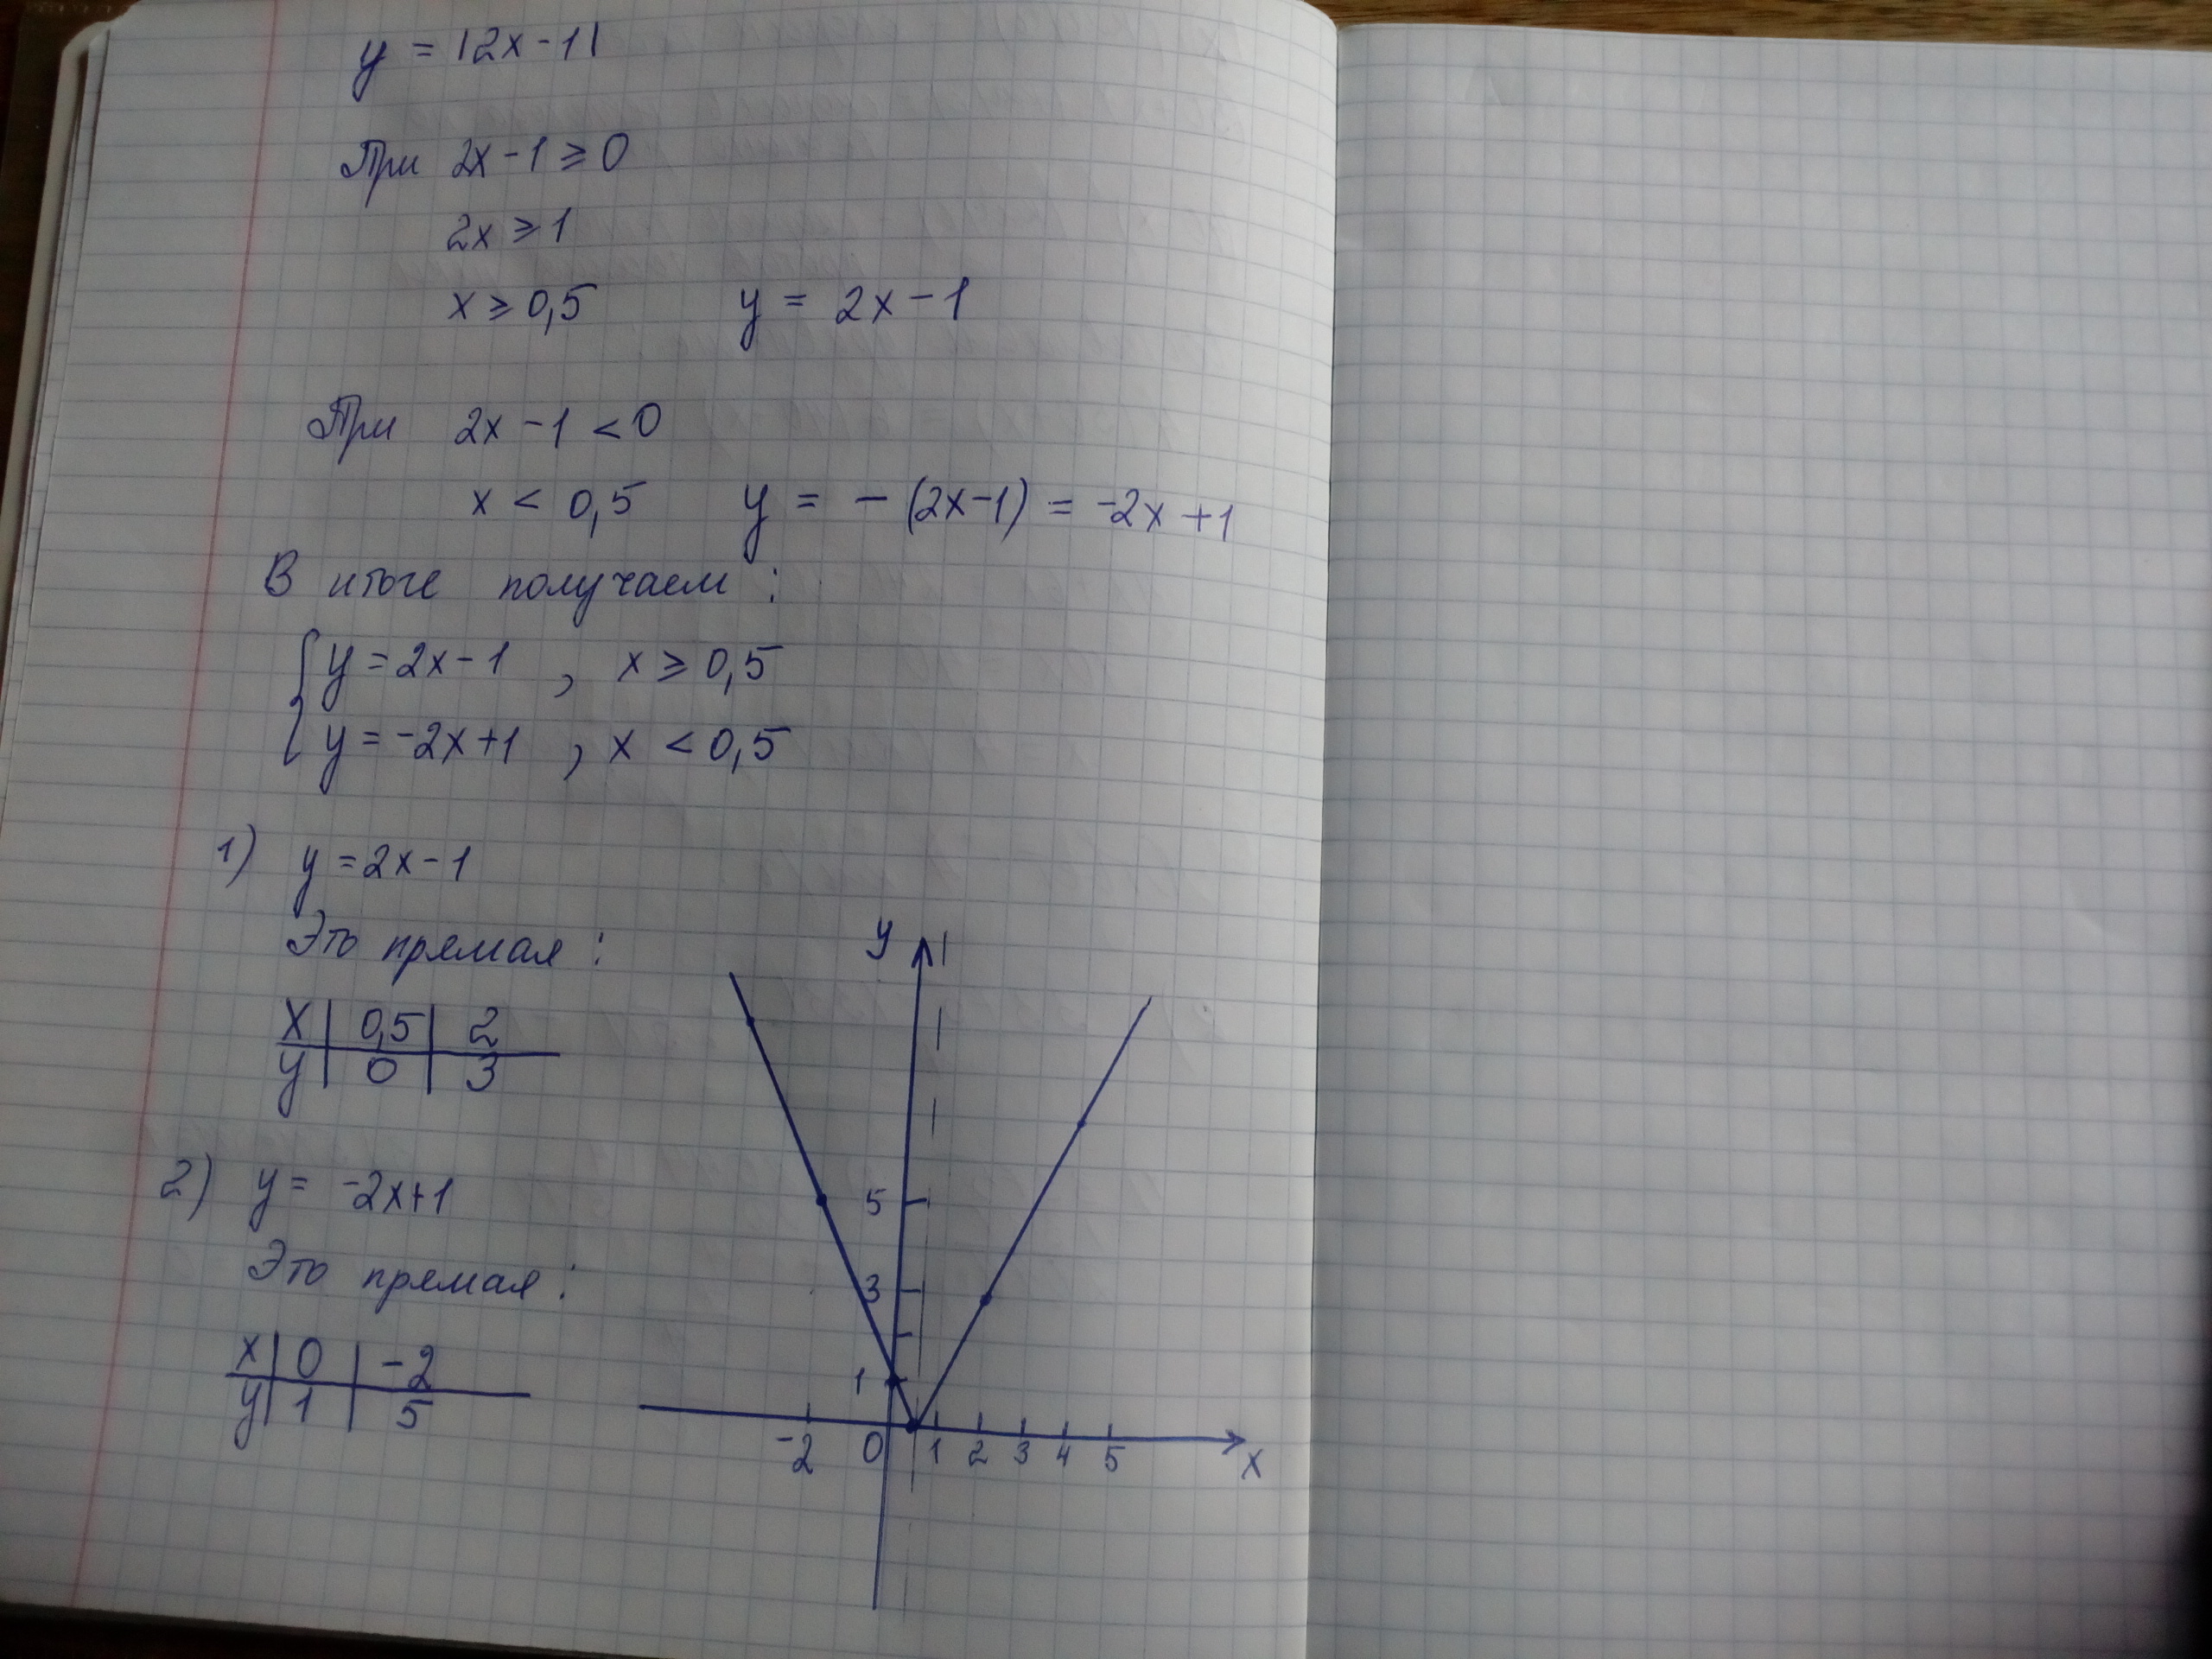 y = |2x-1|
При 2x-1 ⩾ 0
2x ⩾ 1
x ⩾ 0,5 y = 2x-1
При 2x-1 < 0
x < 0,5 y = -(2x-1) = -2x+1
В итоге получаем:
{ y = 2x-1 , x ⩾ 0,5
y = -2x+1 , x < 0,5
1) y = 2x-1
Это прямая:
x | 0,5 | 2
y | 0 | 3
2) y = -2x+1
Это прямая:
x | 0 | -2
y | 1 | 5
y
5
3
1
-2 0 1 2 3 4 5 x